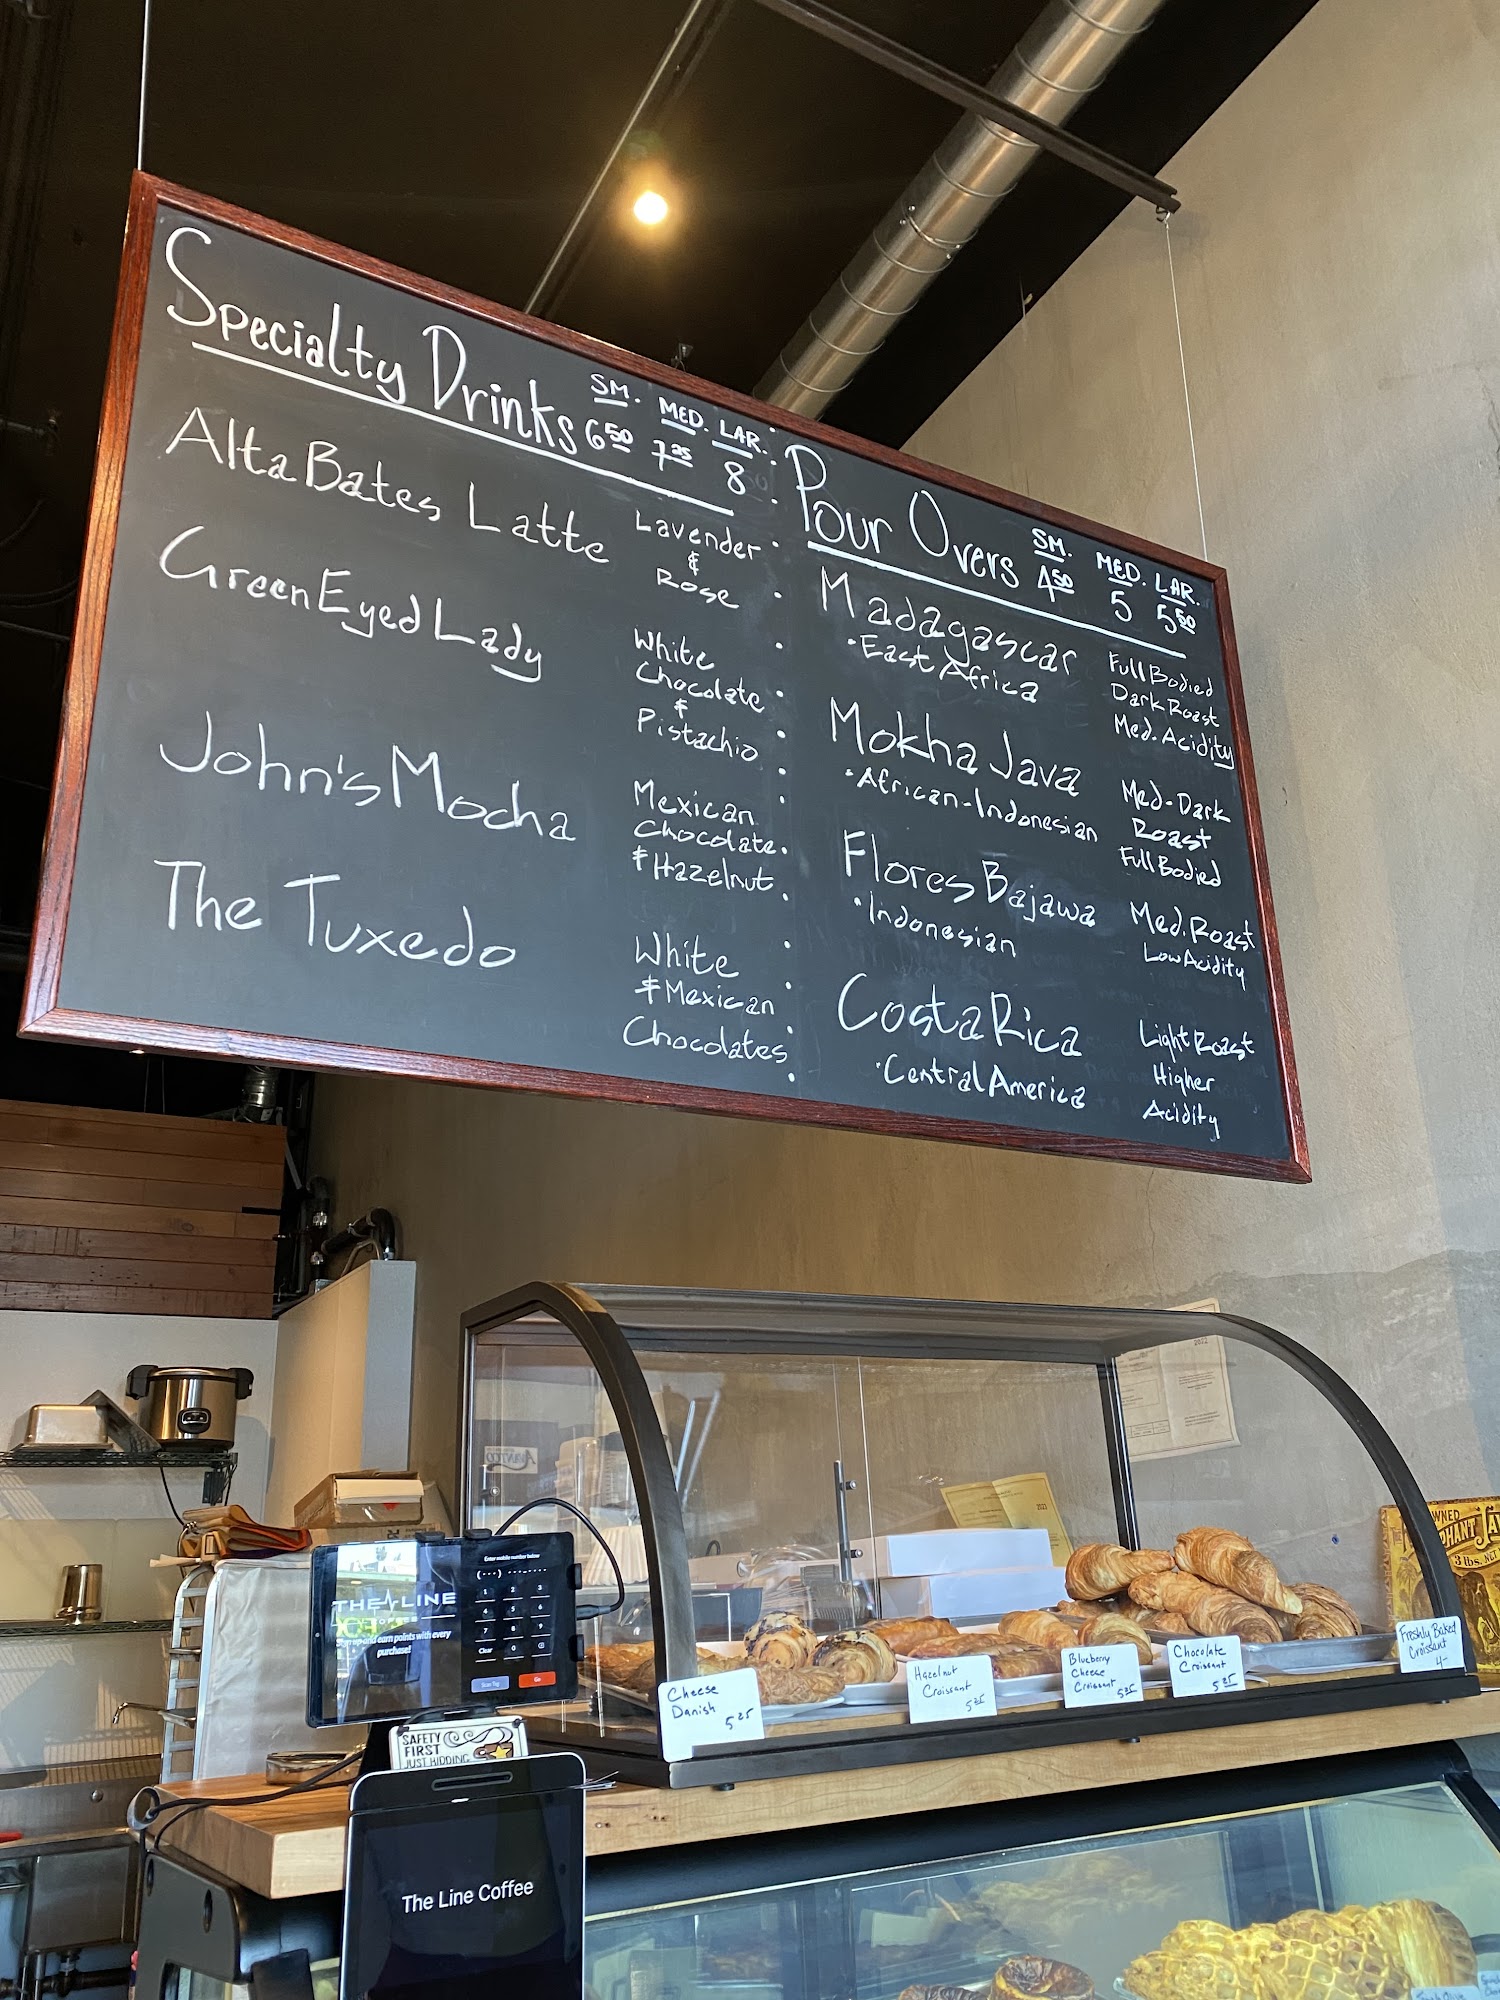 Specialty Drinks
SM. MED. LAR.
6 50 7 25 8
Alta Bates Latte
Lavender
&
Rose
Green Eyed Lady
White
Chocolate
&
Pistachio
John's Mocha
Mexican
Chocolate
& Hazelnut
The Tuxedo
White
& Mexican
Chocolates
Pour Overs
SM. MED. LAR.
4 50 5 5 50
Madagascar
• East Africa
Full Bodied
Dark Roast
Med. Acidity
Mokha Java
• African-Indonesian
Med-Dark
Roast
Full Bodied
Flores Bajawa
• Indonesian
Med. Roast
Low Acidity
Costa Rica
• Central America
Light Roast
Higher
Acidity
2022
2023
THE LINE
COFFEE
Sign up and earn points with every
purchase!
Enter mobile number below
1 2 3
4 5 6
7 8 9
Clear 0
Go
SAFETY
FIRST
JUST KIDDING
The Line Coffee
Cheese
Danish
5 25
Hazelnut
Croissant
5 25
Blueberry
Cheese
Croissant
5 25
Chocolate
Croissant
5 25
Freshly Baked
Croissant
4-
3 lbs. NET